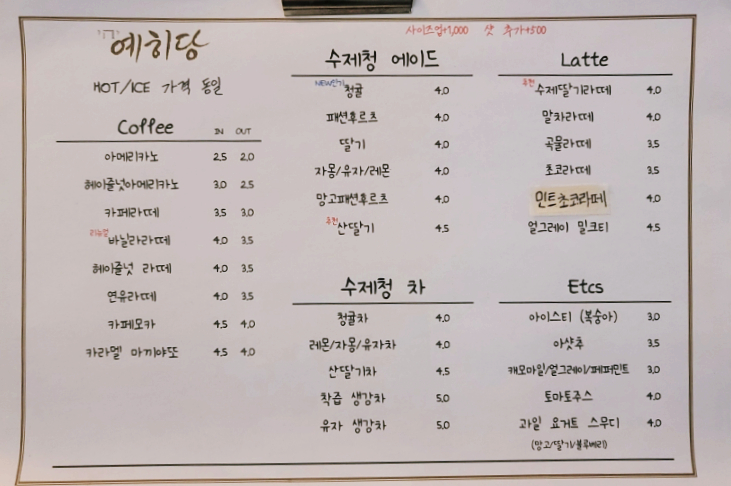 예히당
HOT/ICE 가격 동일
사이즈업+1,000 샷 추가+500
Coffee IN OUT
아메리카노 2.5 2.0
헤이즐넛아메리카노 3.0 2.5
카페라떼 3.5 3.0
리뉴얼 바닐라라떼 4.0 3.5
헤이즐넛 라떼 4.0 3.5
연유라떼 4.0 3.5
카페모카 4.5 4.0
카라멜 마끼야또 4.5 4.0
수제청 에이드
NEW인기 청귤 4.0
패션후르츠 4.0
딸기 4.0
자몽/유자/레몬 4.0
망고패션후르츠 4.0
추천 산딸기 4.5
수제청 차
청귤차 4.0
레몬/자몽/유자차 4.0
산딸기차 4.5
착즙 생강차 5.0
유자 생강차 5.0
Latte
추천 수제딸기라떼 4.0
말차라떼 4.0
곡물라떼 3.5
초코라떼 3.5
민트초코라떼 4.0
얼그레이 밀크티 4.5
Etcs
아이스티 (복숭아) 3.0
아샷추 3.5
캐모마일/얼그레이/페퍼민트 3.0
토마토주스 4.0
과일 요거트 스무디 4.0
(망고/딸기/블루베리)